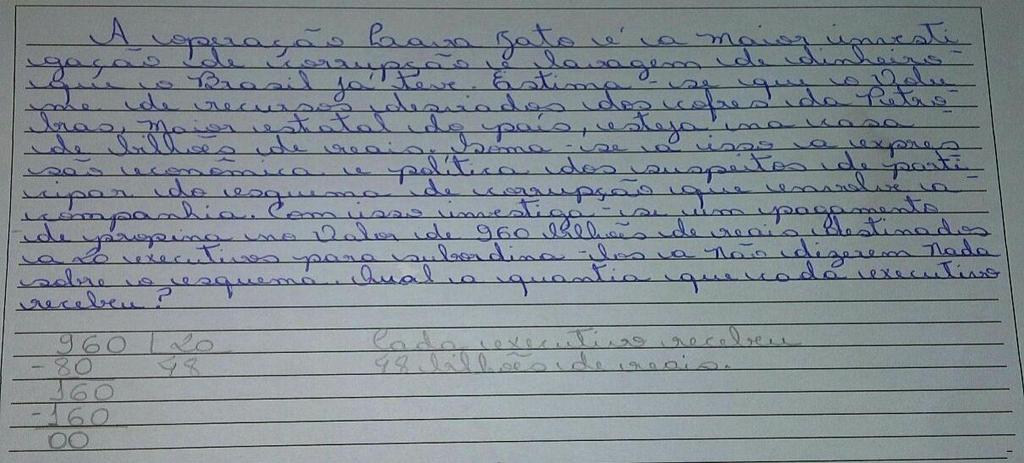 A operação Lava Jato é a maior investi-
gação de corrupção e lavagem de dinheiro
que o Brasil já teve. Estima-se que o volu
me de recursos desviados dos cofres da Petro
bras, maior estatal do país, esteja na casa
de bilhões de reais. Soma-se a isso a expres
são econômica e política dos suspeitos de parti-
cipar do esquema de corrupção que envolve a
companhia. Com isso investiga-se um pagamento
de propina no valor de 960 bilhões de reais destinados
a 20 executivos para subordina-los a não dizerem nada
sobre o esquema. Qual a quantia que cada executivo
recebeu?
960 | 20 Cada executivo recebeu
-80 48 48 bilhões de reais.
160
-160
00